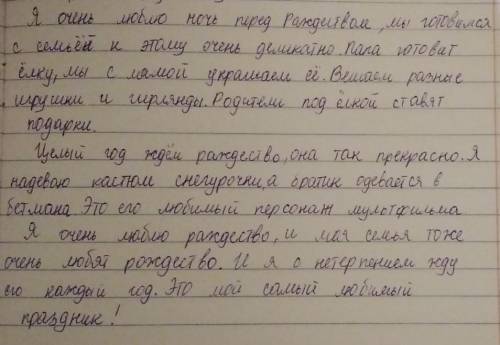 Я очень люблю ночь перед Рождеством, мы готовимся
с семьёй к этому очень деликатно. Папа готовит
ёлку, мы с мамой украшаем её. Вешаем разные
игрушки и гирлянды. Родители под ёлкой ставят
подарки.
Целый год ждём раждество, она так прекрасно. Я
надеваю кастюм снегурочки, а братик одевается в
бетмана. Это его любимый персонаж мультфильма
Я очень люблю раждество, и моя семья тоже
очень любят рождество. И я с нетерпением жду
его каждый год. Это мой самый любимый
праздник!